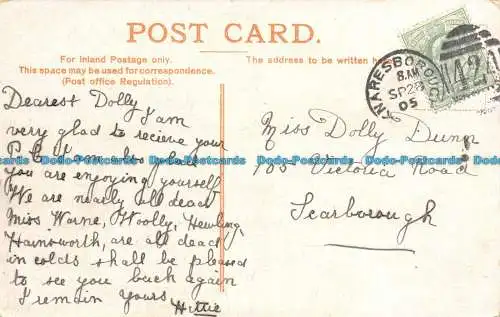 POST CARD.
For Inland Postage only.
This space may be used for correspondence.
(Post office Regulation).
The address to be written here
KNARESBOROUGH
8 AM
SP 28
05
424
Dearest Dolly I am
very glad to recieve your
P.C. I am also glad
you are enjoying yourself
We are nearly all dead
Miss Warne, Woolly, Hewling
Hainsworth, are all dead
in colds shall be pleased
to see you back again
I remain yours Hettie
Miss Dolly Dunn
105 Victoria Road
Scarborough